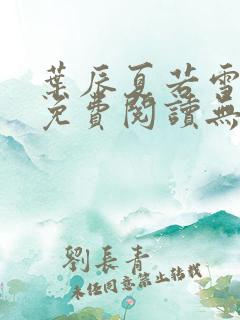 葉辰夏若雪
免費閱讀無
劉長青
未經同意禁止轉載